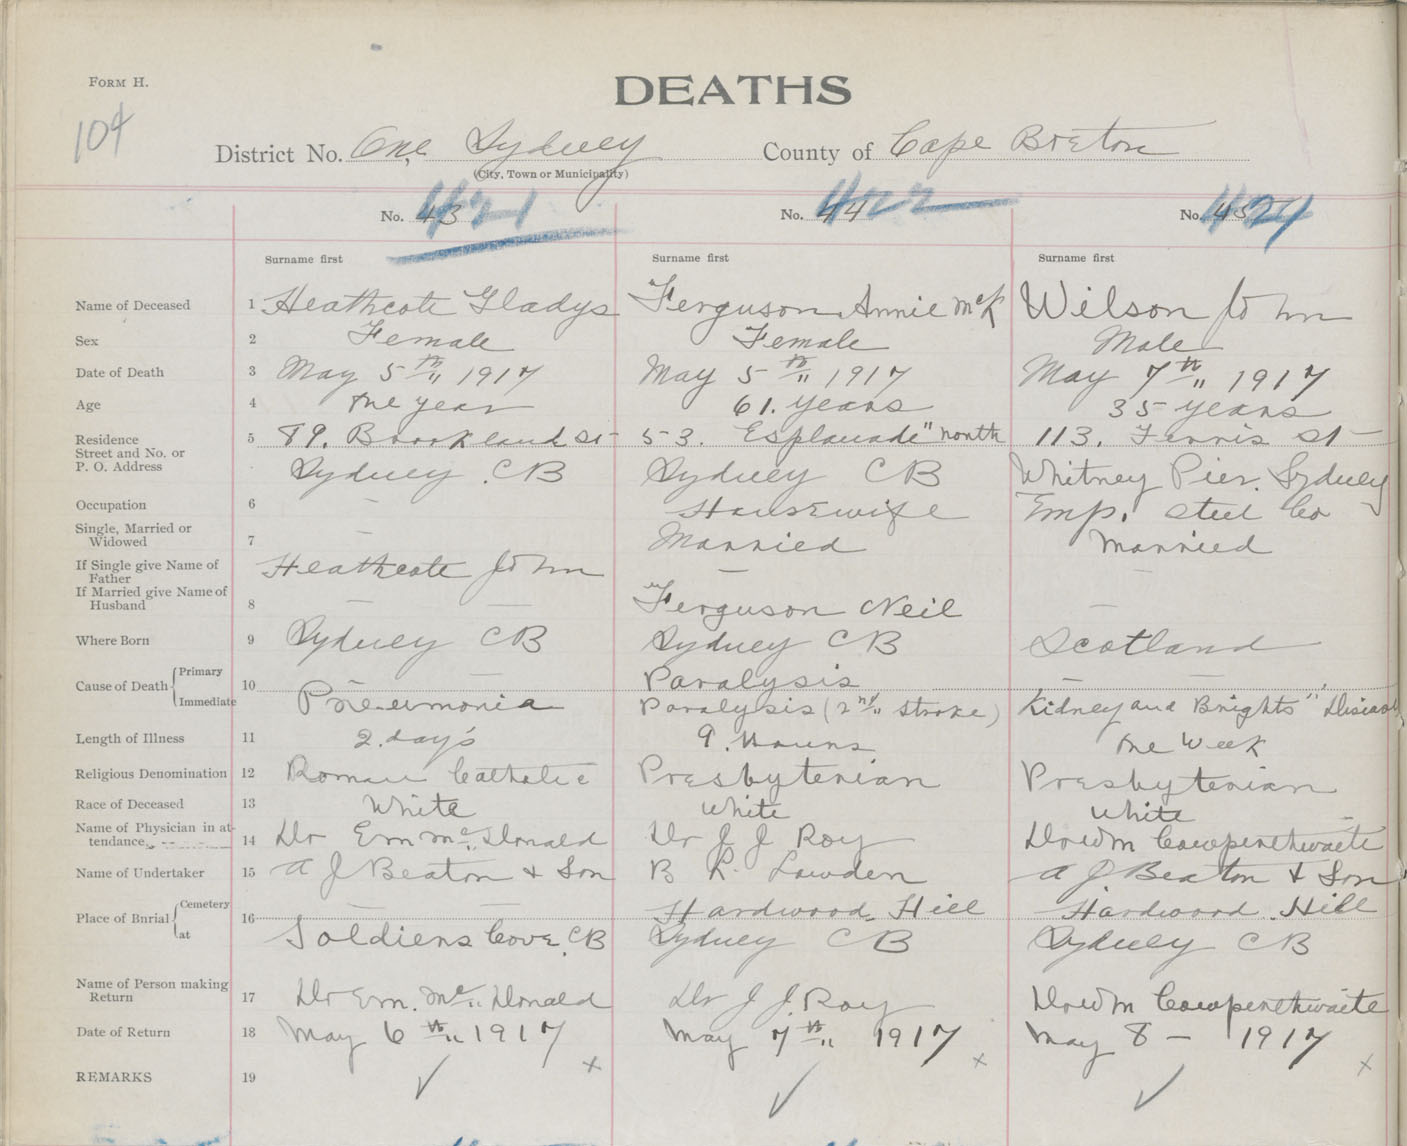 FORM H.
DEATHS
104
District No. One, Sydney County of Cape Breton
(City, Town or Municipality)
No. 43 421 No. 44 422 No. 45 424
Surname first Surname first Surname first
Name of Deceased 1 Heathcote Gladys Ferguson Annie McK Wilson John
Sex 2 Female Female Male
Date of Death 3 May 5th" 1917 May 5th" 1917 May 7th" 1917
Age 4 One year 61. years 35 years
Residence 5 89. Brookland St 53. Esplanade" north 113. Ferris St
Street and No. or
P. O. Address Sydney. CB Sydney CB Whitney Pier. Sydney
Occupation 6 — Housewife Emp. Steel Co
Single, Married or
Widowed 7 — Married Married
If Single give Name of
Father Heathcote John — —
If Married give Name of
Husband 8 — — Ferguson Neil —
Where Born 9 Sydney CB Sydney CB Scotland
Cause of Death Primary 10 — Paralysis — —
Immediate Pneumonia Paralysis (2nd" stroke) Kidney and Brights" Disease
Length of Illness 11 2. days 9. Hours One Week
Religious Denomination 12 Roman Catholic Presbyterian Presbyterian
Race of Deceased 13 White White White
Name of Physician in at-
tendance 14 Dr E m Mc" Donald Dr J J Roy Dr Wm Cowperthwaite
Name of Undertaker 15 A J Beaton & Son B L. Lowden A J Beaton & Son
Place of Burial Cemetery 16 — — Hardwood Hill Hardwood Hill
at Soldiers Cove. CB Sydney CB Sydney CB
Name of Person making
Return 17 Dr Em. Mc" Donald Dr J J. Roy Dr Wm Cowperthwaite
Date of Return 18 May 6th" 1917 May 7th" 1917 May 8 — 1917
x x x
REMARKS 19 ✓ ✓ ✓